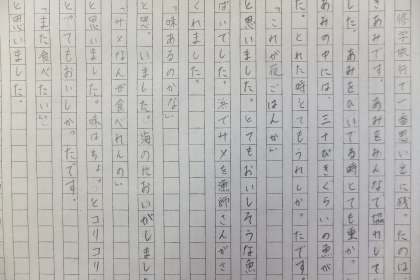 修学旅行で一番思い出に残ったのは
きあみです。あみをみんなで協力して
した。あみをひいてる時とても重か
あみの中には、三十ぴきくらいの魚が
た。とれた時とてもうれしかったです。
「これが夜ごはんか」
と思いました。とてもおいしそうな魚
ぱいでした。浜でサメを漁師さんがさ
くれました。
「味あるのかな」
と思いました。海のにおいがしまし
「サメなんか食べれんの」
と思いました。味はちょっとコリコリ
とってもおいしかったです。
「また食べたい」
と思いました。